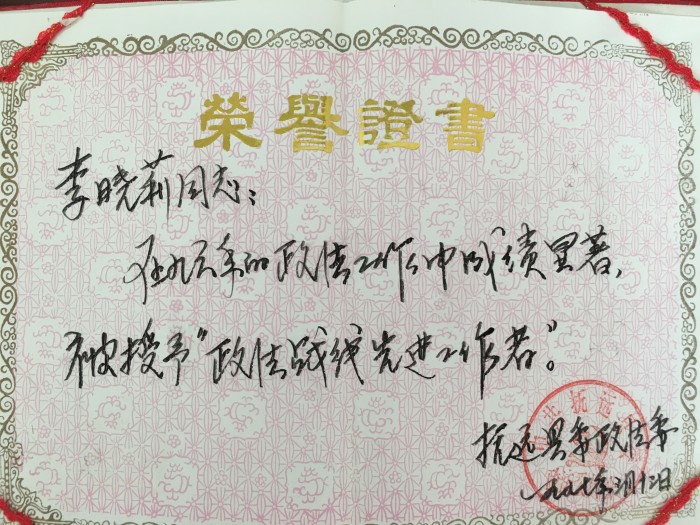 榮譽證書
李晓莉同志：
在九六年的政法工作中成绩显著，
被授予“政法战线先进工作者”。
抚远县委政法委
一九九七年三月十二日